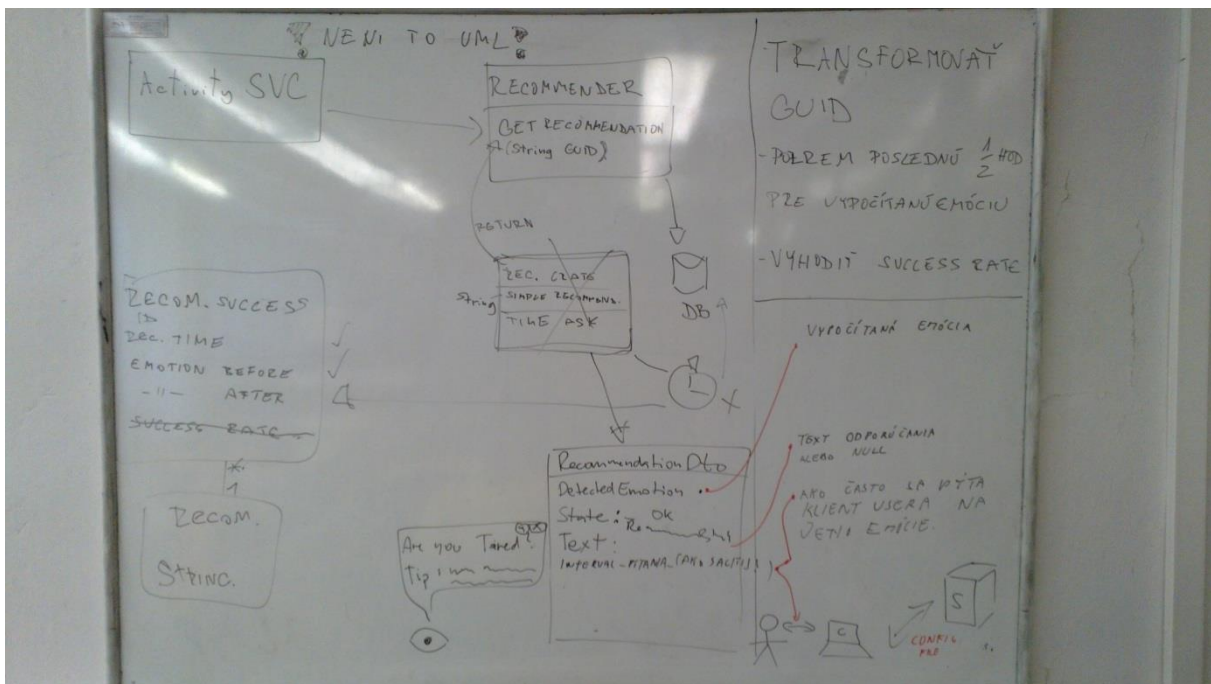 NENI TO UML
Activity SVC
RECOMMENDER
GET RECOMMENDATION
(String GUID)
RETURN
String
SIMPLE RECOMMEND.
TIME ASK
DB
RECOM. SUCCESS
ID
REC. TIME
EMOTION BEFORE
-"- AFTER
SUCCESS RATE
*
1
RECOM.
STRING.
Are you Tired?
Tip:
*
Recommendation Dto
Detected Emotion
State: OK
Text:
INTERVAL_PITANA_(AKO SA CITIS)
TRANSFORMOVAŤ
GUID
- POZREM POSLEDNÚ 1/2 HOD
PRE VYPOČÍTANÚ EMÓCIU
- VYHODIŤ SUCCESS RATE
VYPOČÍTANÁ EMÓCIA
TEXT ODPORÚČANIA
ALEBO NULL
AKO ČASTO SA PÝTA
KLIENT USERA NA
JEHO EMÓCIE.
C
S
CONFIG
1.